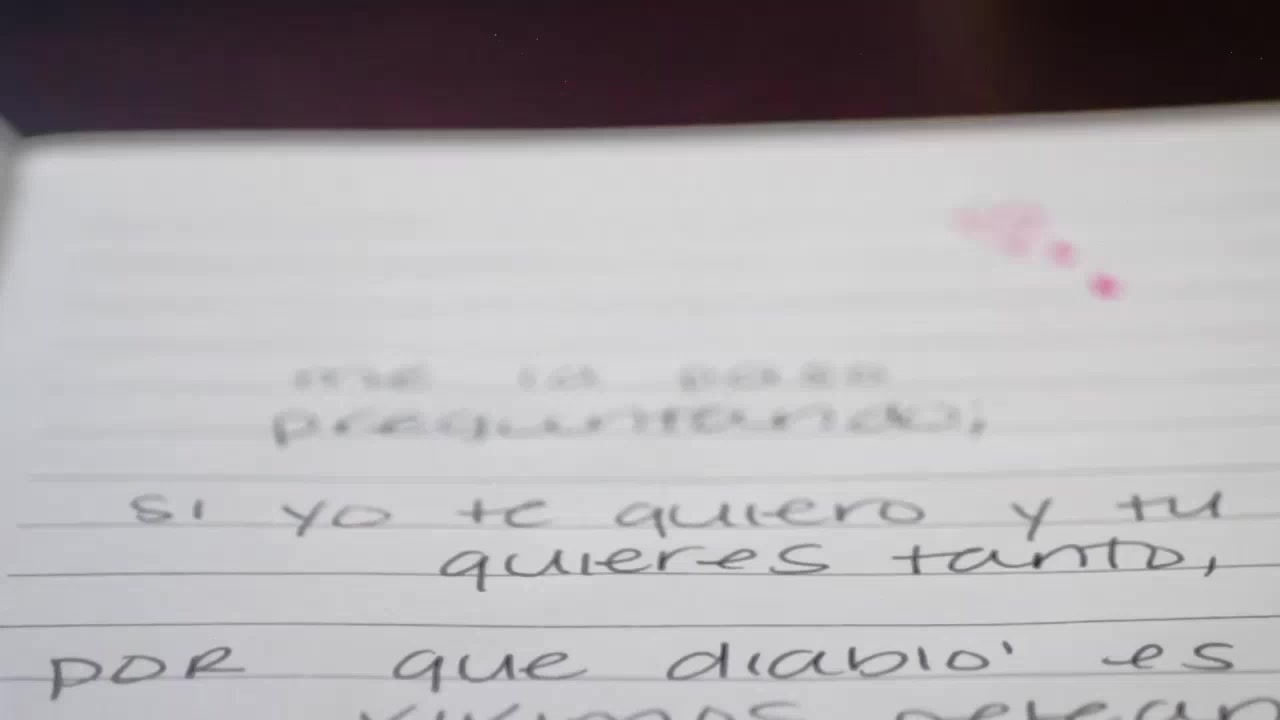 me la paso
preguntando,
si yo te quiero y tu
quieres tanto,
por que diablo' es
vivimos pelean